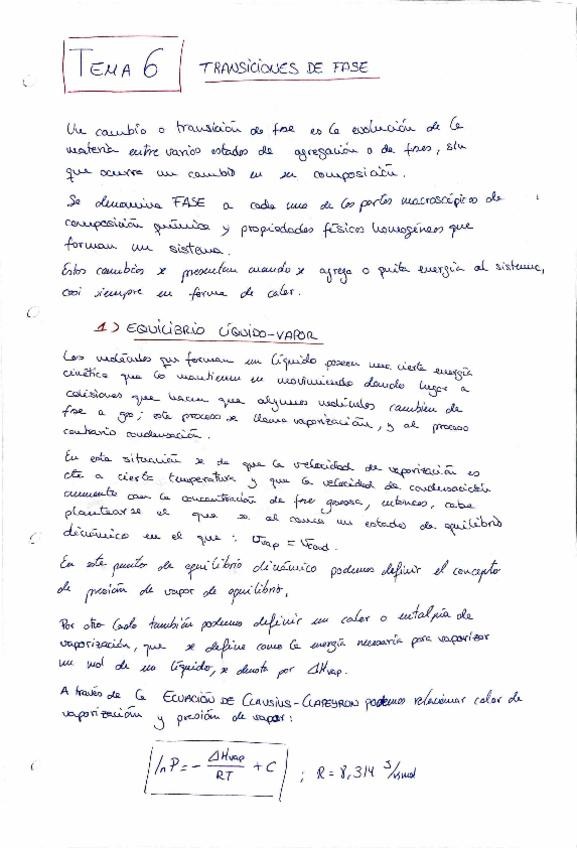 TEMA 6
TRANSICIONES DE FASE
Un cambio o transición de fase es la evolución de la
materia entre varios estados de agregación o de fases, sin
que ocurra un cambio en su composición.
Se denomina FASE a cada una de las partes macroscópicas de
composición química y propiedades físicas homogéneas que
forman un sistema.
Estos cambios se presentan cuando se agrega o quita energía al sistema,
casi siempre en forma de calor.
1) EQUILIBRIO LÍQUIDO-VAPOR
Las moléculas que forman un líquido poseen una cierta energía
cinética que las mantienen en movimiento dando lugar a
colisiones que hacen que algunas moléculas cambien de
fase a gas; este proceso se llama vaporización, y al proceso
contrario condensación.
En esta situación se da que la velocidad de vaporización es
cte a cierta temperatura y que la velocidad de condensación
aumenta con la concentración de fase gaseosa, entonces, cabe
plantearse el que se alcance un estado de equilibrio
dinámico en el que : Vvap = Vcond.
En este punto de equilibrio dinámico podemos definir el concepto
de presión de vapor de equilibrio.
Por otro lado también podemos definir un calor o entalpía de
vaporización, que se define como la energía necesaria para vaporizar
un mol de un líquido, se denota por ΔHvap.
A través de la ECUACIÓN DE CLAUSIUS-CLAPEYRON podemos relacionar calor de
vaporización y presión de vapor:
ln P = - ΔHvap / RT + C ; R = 8,314 J/kmol